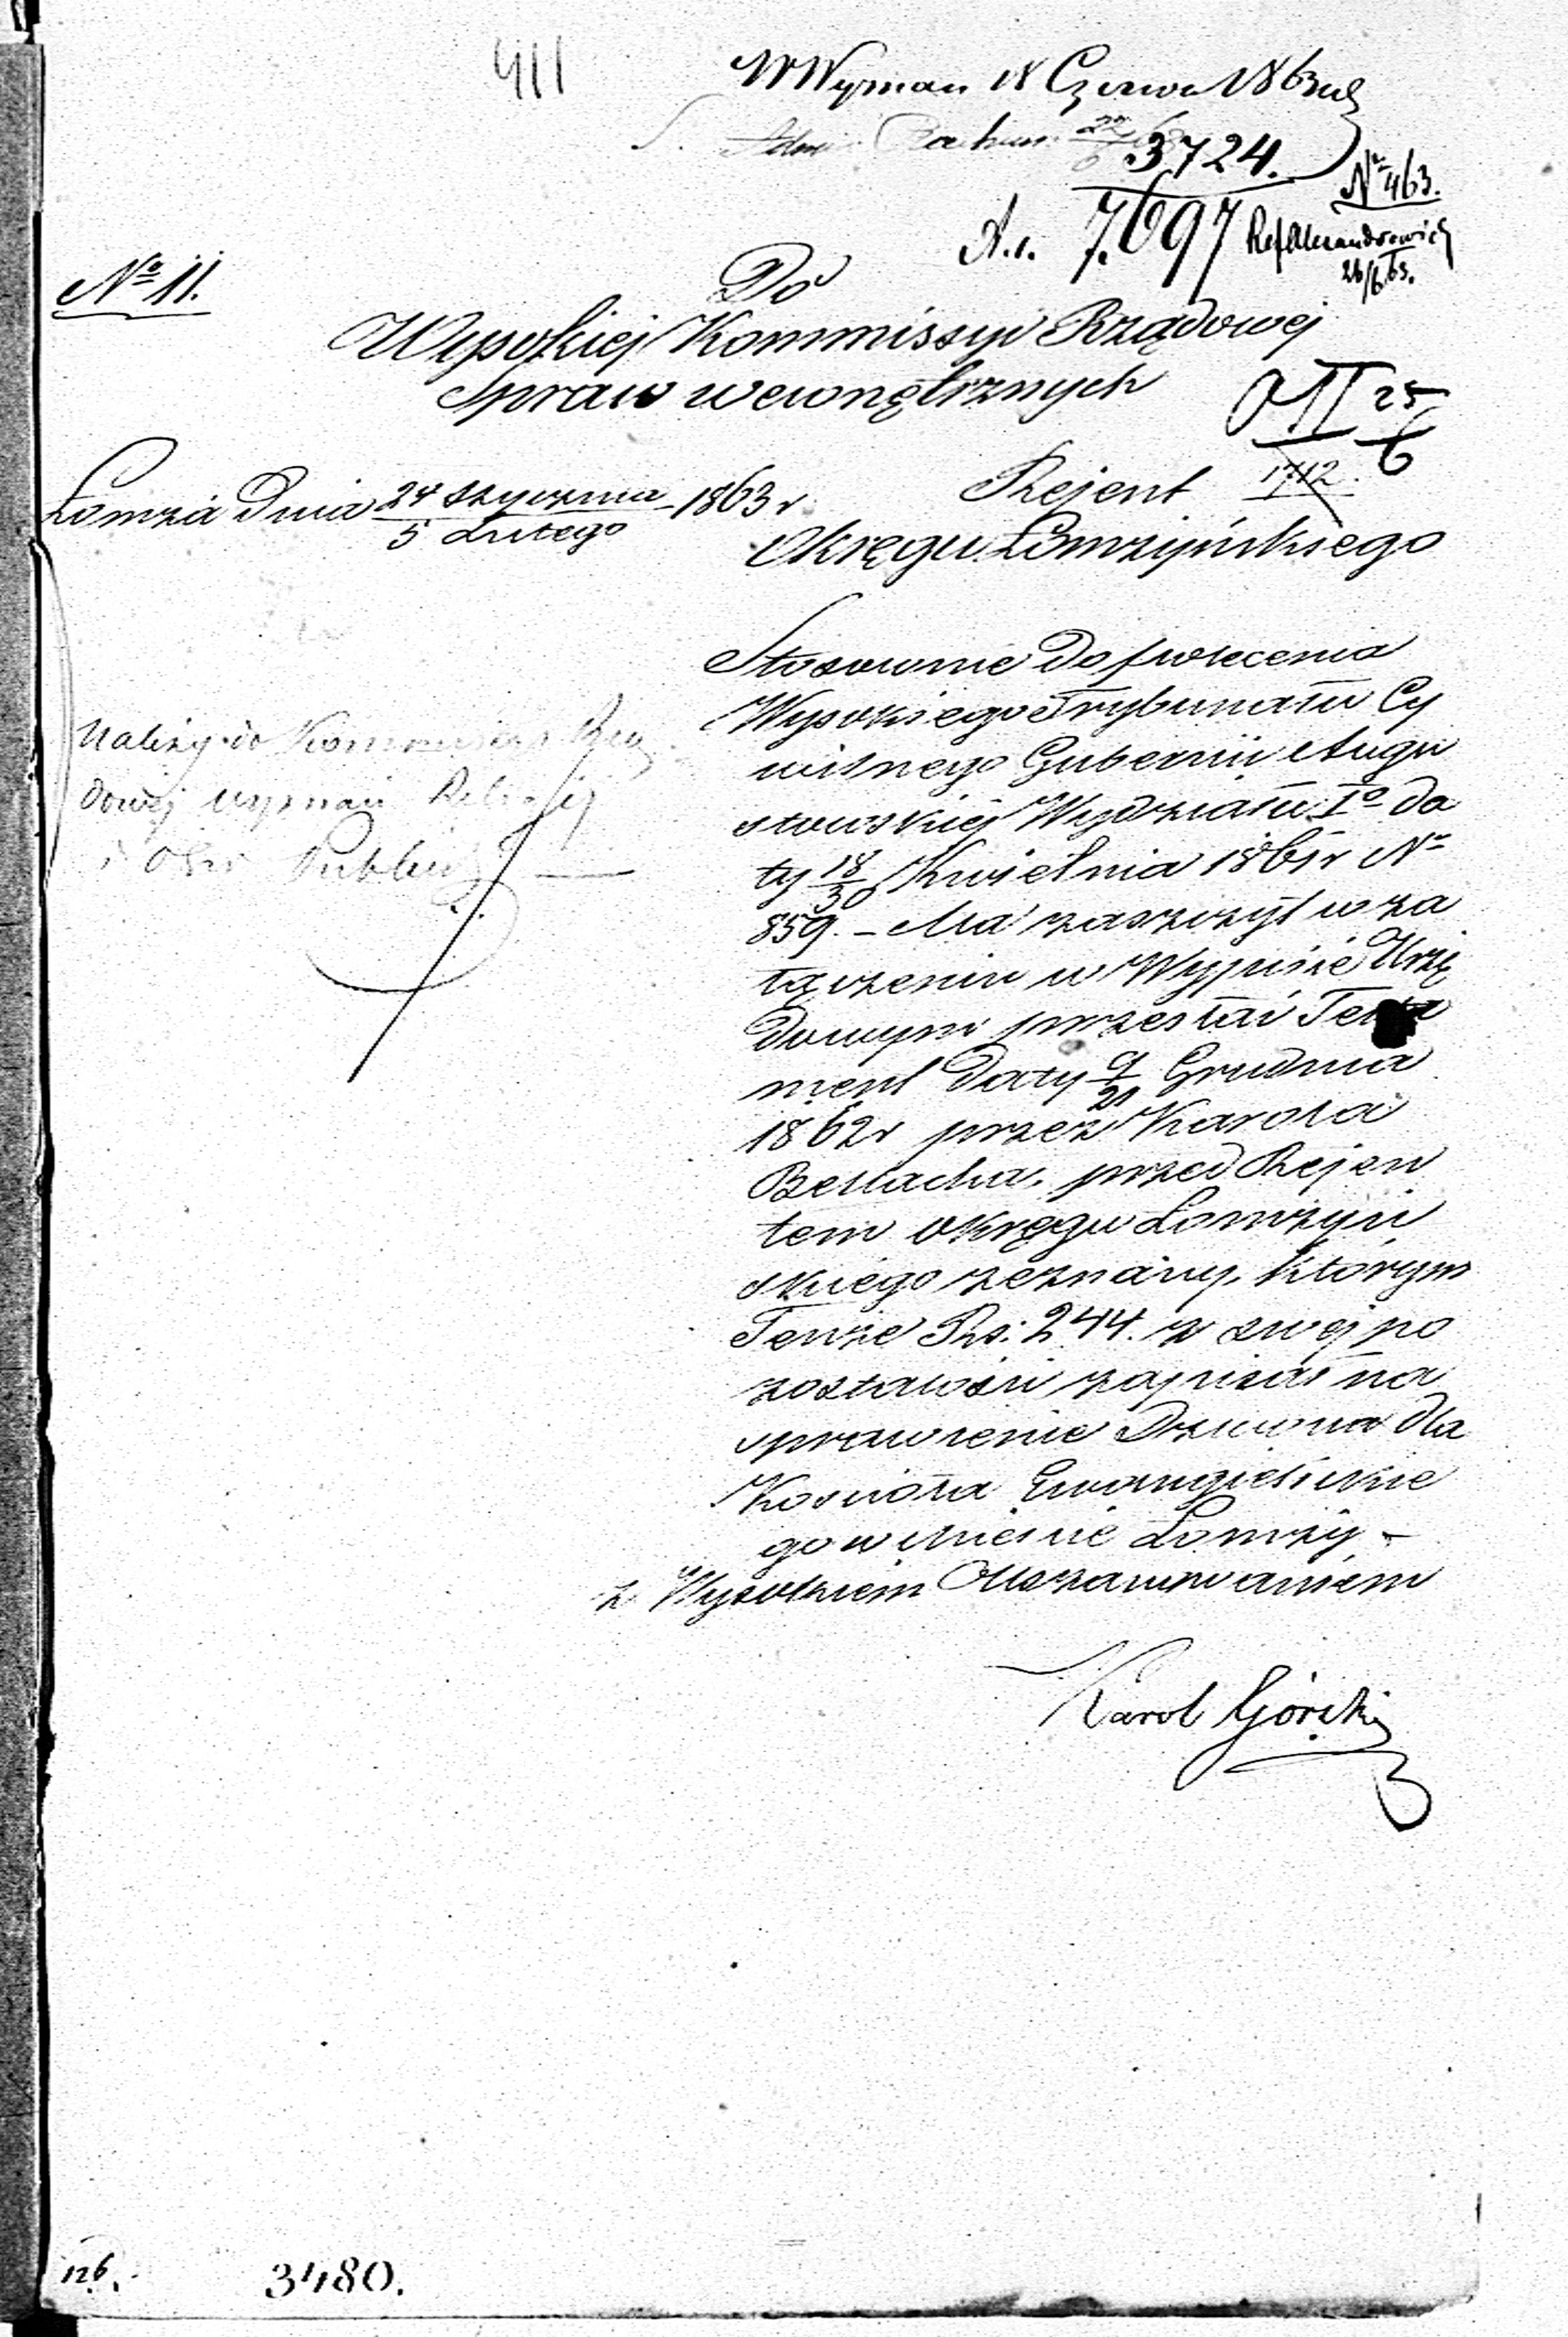 411
W Wyznań 18 Czerwca 1863
3724.
Nº 463.
A.1. 7.697
Ref Alexandrowicz
26/6 63.
Nº 11.
Do
Wysokiej Kommissyi Rządowej
Spraw wewnętrznych
25
6
1712
Łomża Dnia 24 Stycznia / 5 Lutego 1863 r
Rejent
Okręgu Łomżyńskiego
Należy do Kommissyi Rzą
dowej wyznań Religij
i Ośw Publicz
Stosownie do polecenia
Wysokiego Trybunału Cy
wilnego Gubernii Augu
stowskiej Wydziału Iº da
ty 18/30 Kwietnia 1861r Nº
859. – Ma zaszczyt w za
łączeniu w Wypisie Urzę
dowym przesłać Testa
ment daty 9/21 Grudnia
1862r przez Karola
Bellacha, przed Rejen
tem Okręgu Łomżyń
skiego zeznany, którym
Tenże Rs: 244. z swej po
zostałości zapisał na
sprawienie Dzwona dla
Kościoła Ewangielickie
go w Mieście Łomży –
z Wysokiem Uszanowaniem
Karol Górski
126.
3480.